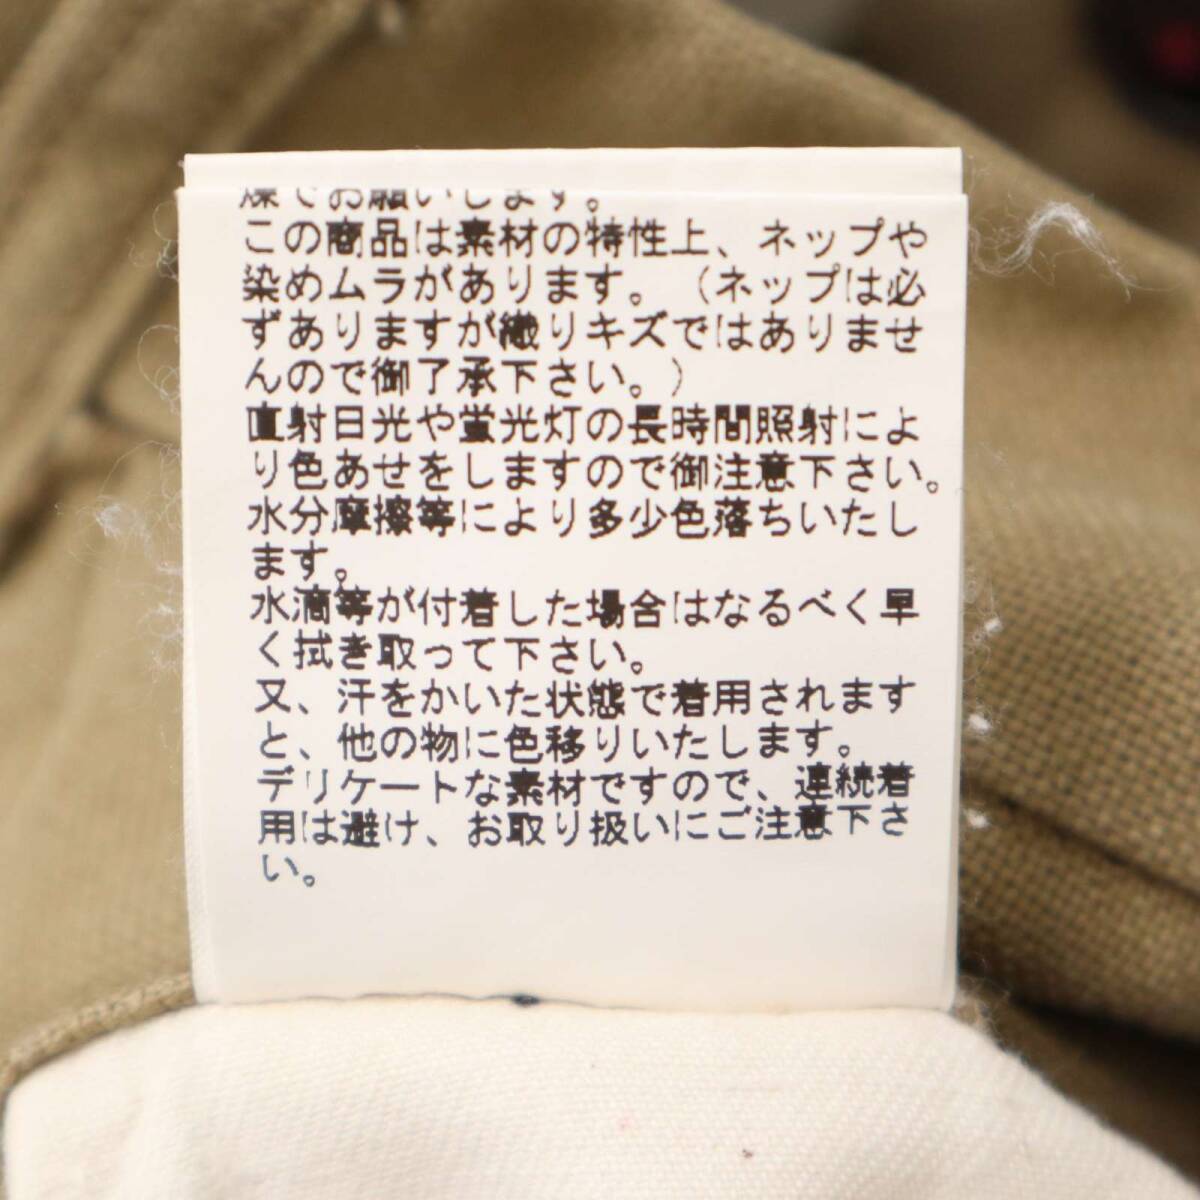 燥でお願いします。
この商品は素材の特性上、ネップや
染めムラがあります。（ネップは必
ずありますが織りキズではありませ
んので御了承下さい。）
直射日光や蛍光灯の長時間照射によ
り色あせをしますので御注意下さい。
水分摩擦等により多少色落ちいたし
ます。
水滴等が付着した場合はなるべく早
く拭き取って下さい。
又、汗をかいた状態で着用されます
と、他の物に色移りいたします。
デリケートな素材ですので、連続着
用は避け、お取り扱いにご注意下さ
い。